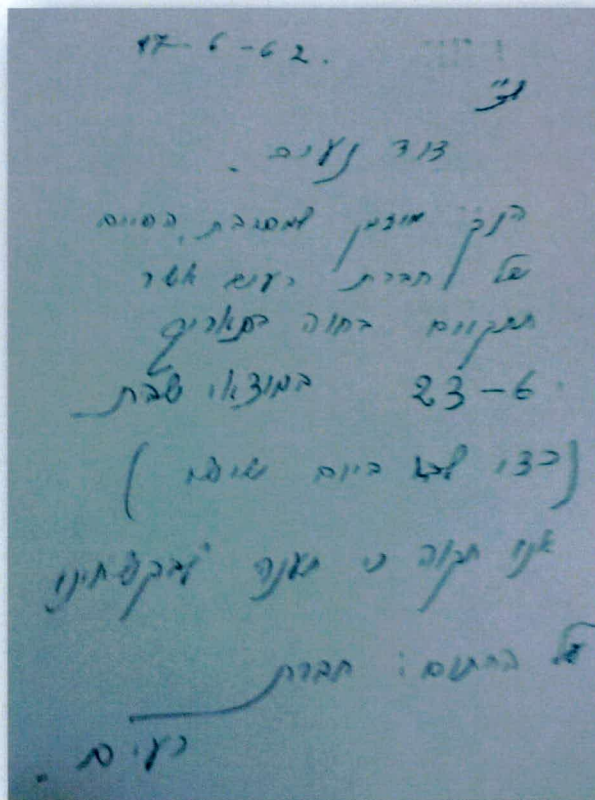 17-6-62.
דוד נעים.
הנך מוזמן למסיבת הסיום
של חברת רעים אשר
תתקיים בחוה בתאריך
23-6 במוצאי שבת
(כדי לבא ביום שישי)
אנו תקוה כי תענה לבקשתינו
על החתום: חברת
רעים.